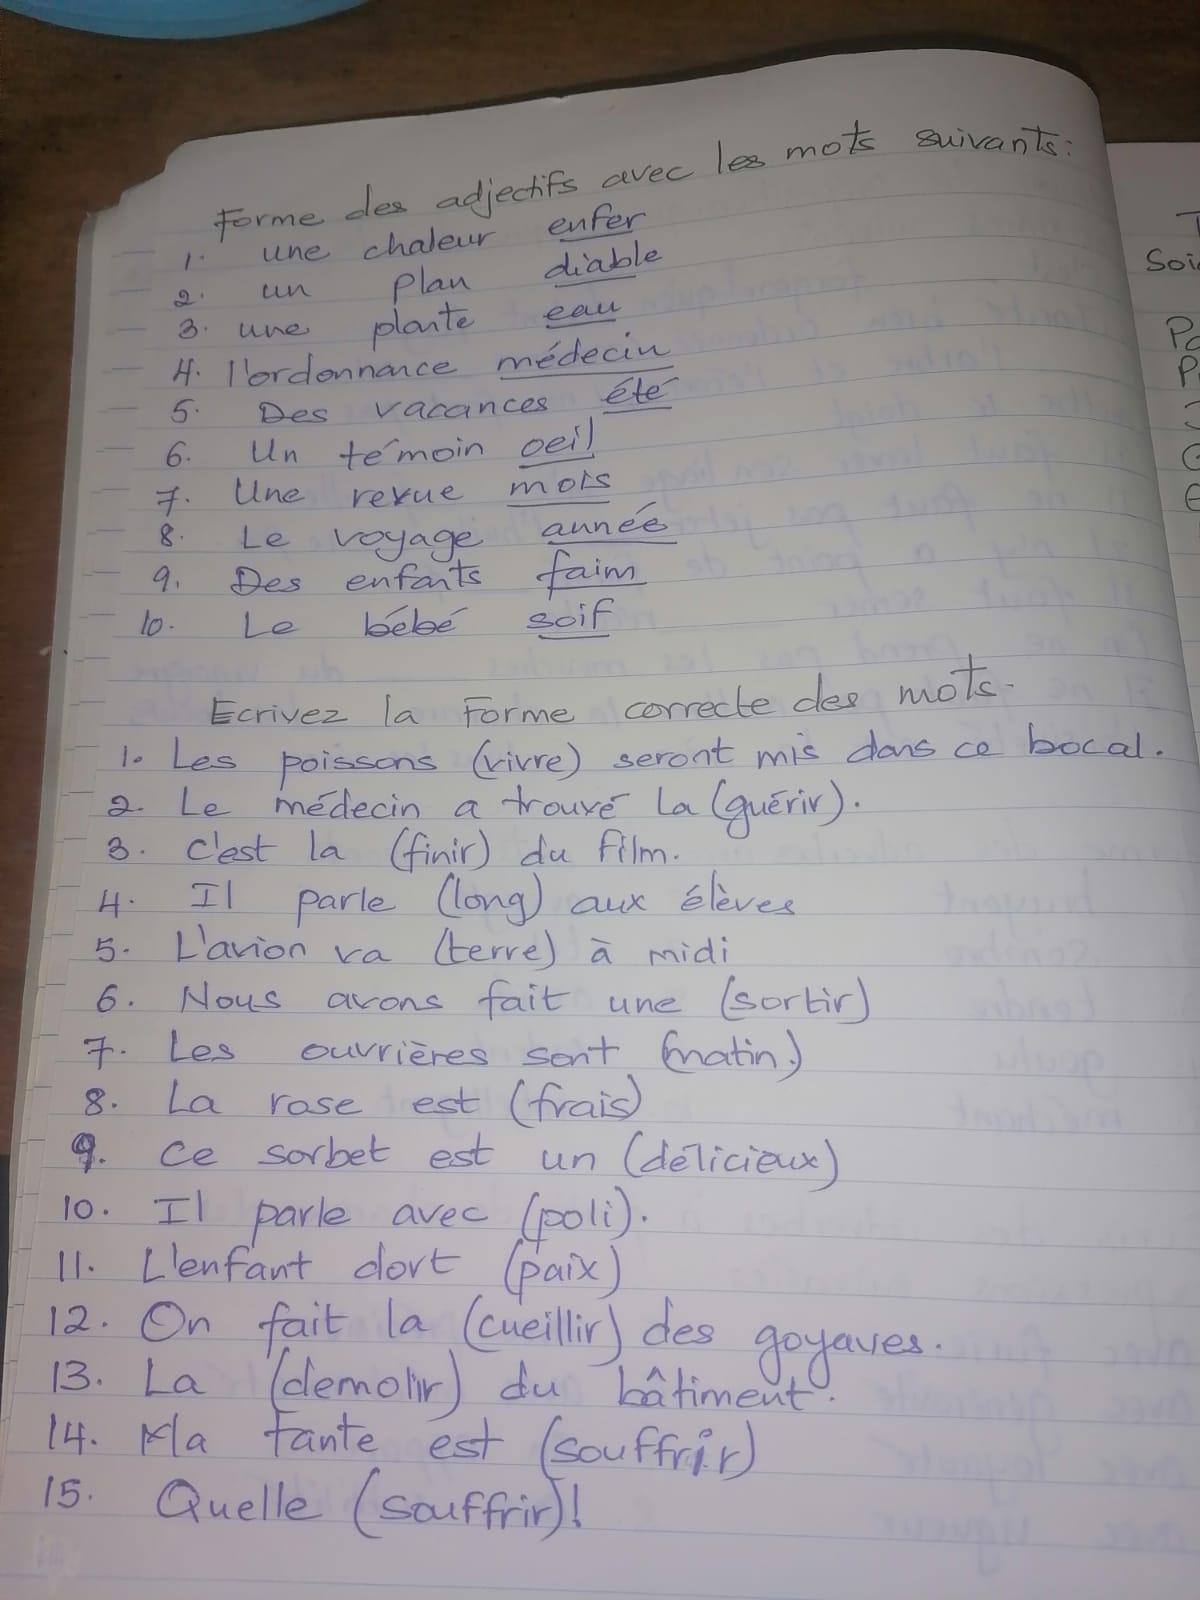 Forme des adjectifs avec les mots suivants:
1. une chaleur enfer
2. un plan diable
3. une plante eau
4. l'ordonnance médecin
5. Des vacances été
6. Un témoin oeil
7. Une revue mois
8. Le voyage année
9. Des enfants faim
10. Le bébé soif
Ecrivez la Forme correcte des mots.
1. Les poissons (vivre) seront mis dans ce bocal.
2. Le médecin a trouvé la (guérir).
3. C'est la (finir) du film.
4. Il parle (long) aux élèves
5. L'avion va (terre) à midi
6. Nous avons fait une (sortir)
7. Les ouvrières sont (matin.)
8. La rose est (frais)
9. Ce sorbet est un (délicieux)
10. Il parle avec (poli).
11. L'enfant dort (paix)
12. On fait la (cueillir) des goyaves.
13. La (demolir) du bâtiment.
14. Ma tante est (souffrir)
15. Quelle (souffrir)!
Soi